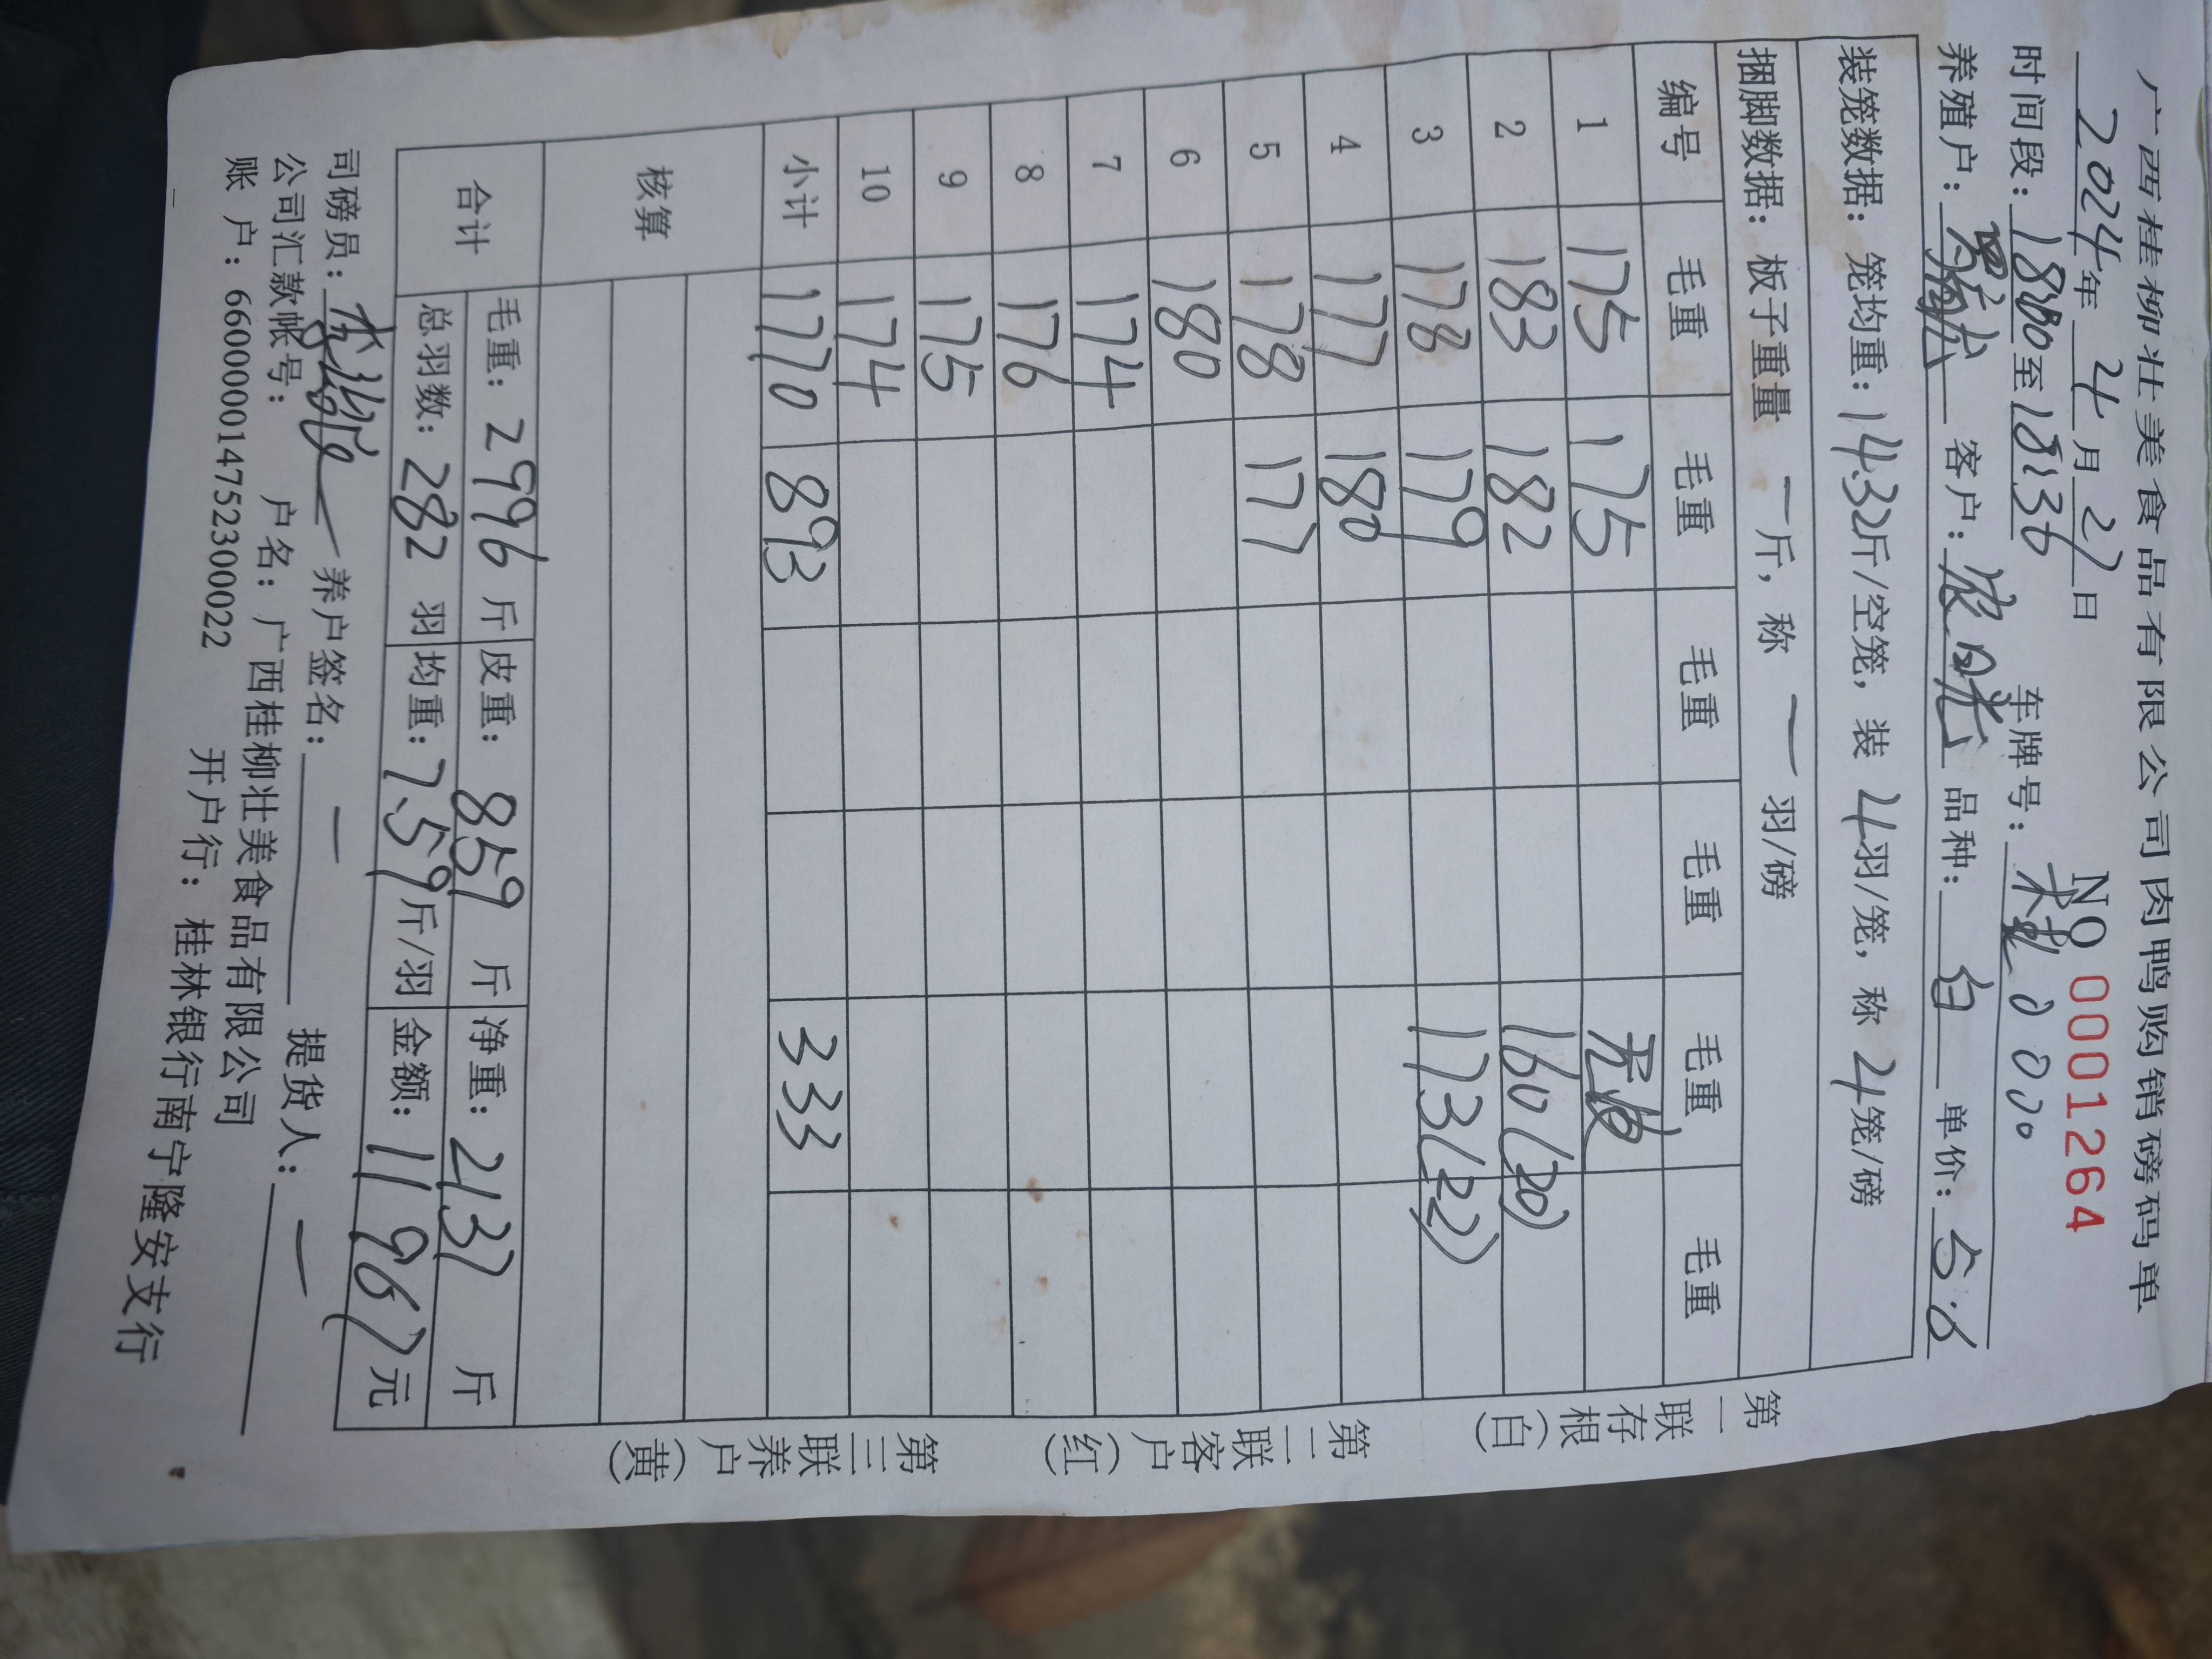 广西桂柳壮美食品有限公司肉鸭购销磅码单
2024年 4月 27日 NO 0001264
时间段: 1800至1836 车牌号: 桂 0000
养殖户: 客户: 品种: 白 单价: 5.6
装笼数据: 笼均重: 14.32斤/空笼, 装 4羽/笼, 称 4笼/磅
捆脚数据: 板子重量 一 斤, 称 一 羽/磅
编号 毛重 毛重 毛重 毛重 毛重 毛重
1 175 175 无皮
2 183 182 160(20)
3 178 179 173(22)
4 177 180
5 178 177
6 180
7 174
8 176
9 175
10 174
小计 1770 893 333
核算
合计 毛重: 2996 斤 皮重: 859 斤 净重: 2137 斤
总羽数: 282 羽 均重: 7.59斤/羽 金额: 11967元
司磅员: 养户签名: 一 提货人: 一
公司汇款帐号: 户名: 广西桂柳壮美食品有限公司
账 户: 660000014752300022 开户行: 桂林银行南宁隆安支行
第一联存根(白)
第二联客户(红)
第三联养户(黄)